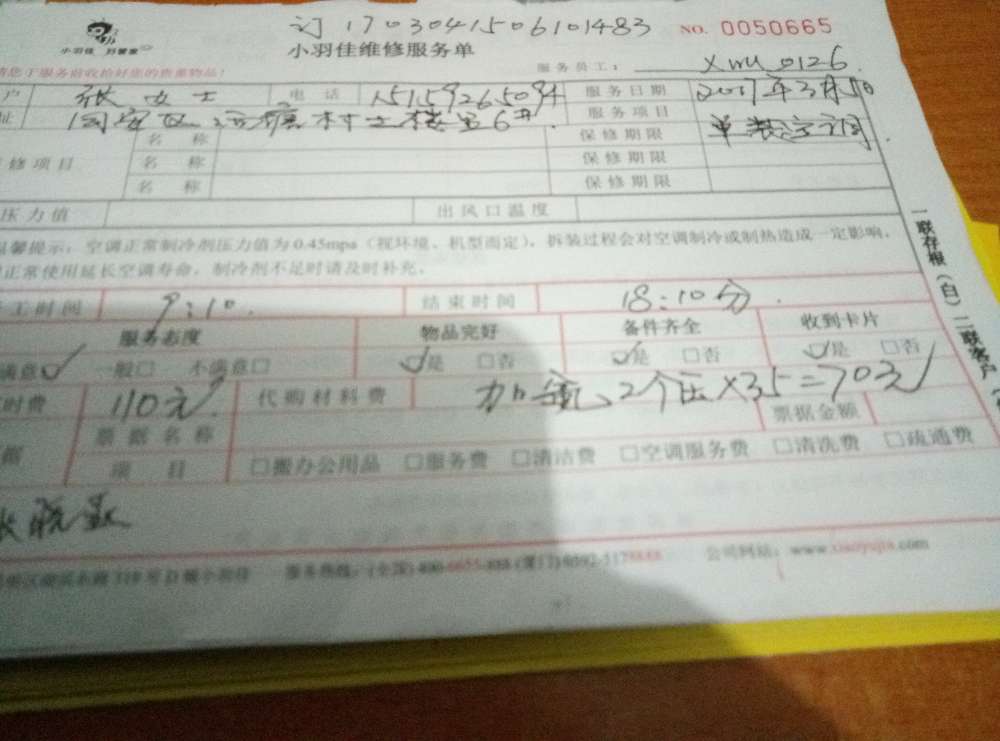 订 1703041506101483
NO. 0050665
小羽佳 好管家
小羽佳维修服务单
服务员工: XMU 0126
请您于服务前收拾好您的贵重物品!
户 张女士 电话 15159265094 服务日期 2017年3月
址 同安区 村 6号 服务项目
名称 保修期限
修项目 名称 保修期限
名称 保修期限
压力值 出风口温度
温馨提示:空调正常制冷剂压力值为0.45mpa(视环境、机型而定),拆装过程会对空调制冷或制热造成一定影响,
正常使用延长空调寿命,制冷剂不足时请及时补充。
工时间 9:10. 结束时间 18:10分.
服务态度 物品完好 备件齐全 收到卡片
满意✓ 一般□ 不满意□ ✓是 □否 ✓是 □否 ✓是 □否
时费 110元 代购材料费 加氟、2个压×35=70元
票据名称 票据金额
据 项目 □搬办公用品 □服务费 □清洁费 □空调服务费 □清洗费 □疏通费
服务热线:(全国)400-6655-888 (厦门)0592-5178888 公司网站:www.xiaoyujia.com
一联存根(白)二联客户